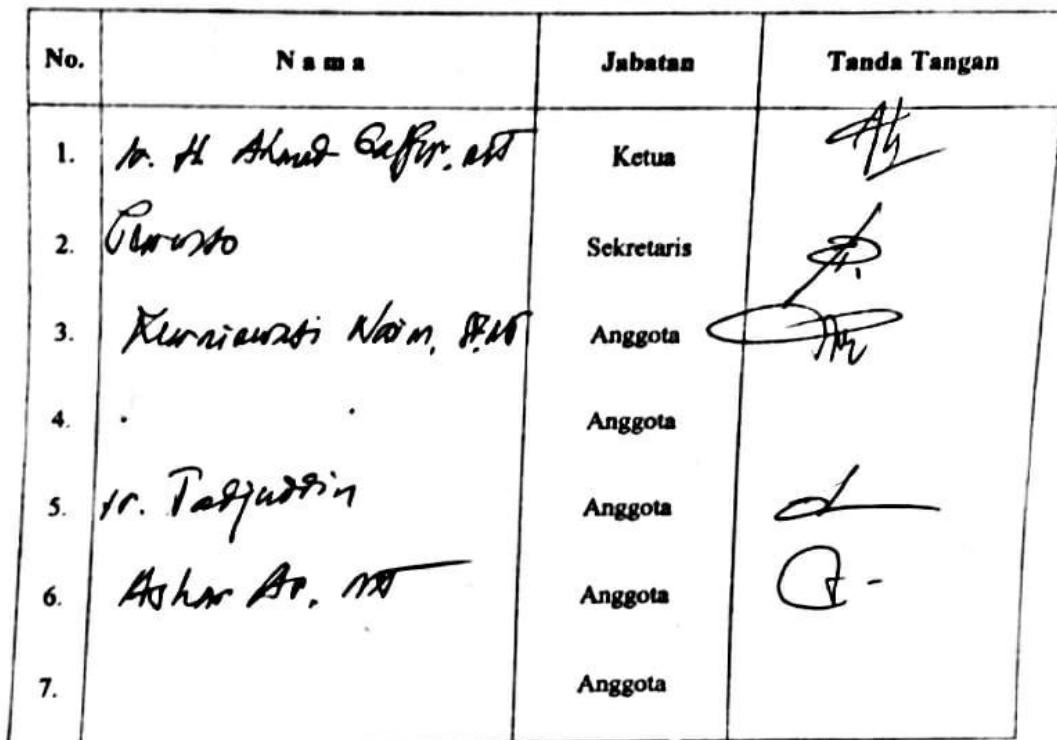 No. Nama Jabatan Tanda Tangan
1. Ir. H Ahmad Gaffar, MT Ketua
2. Sekretaris
3. Kurniawati Naim, ST. MT Anggota
4. Anggota
5. Ir. Tadjuddin Anggota
6. Ashar Ar, MT Anggota
7. Anggota